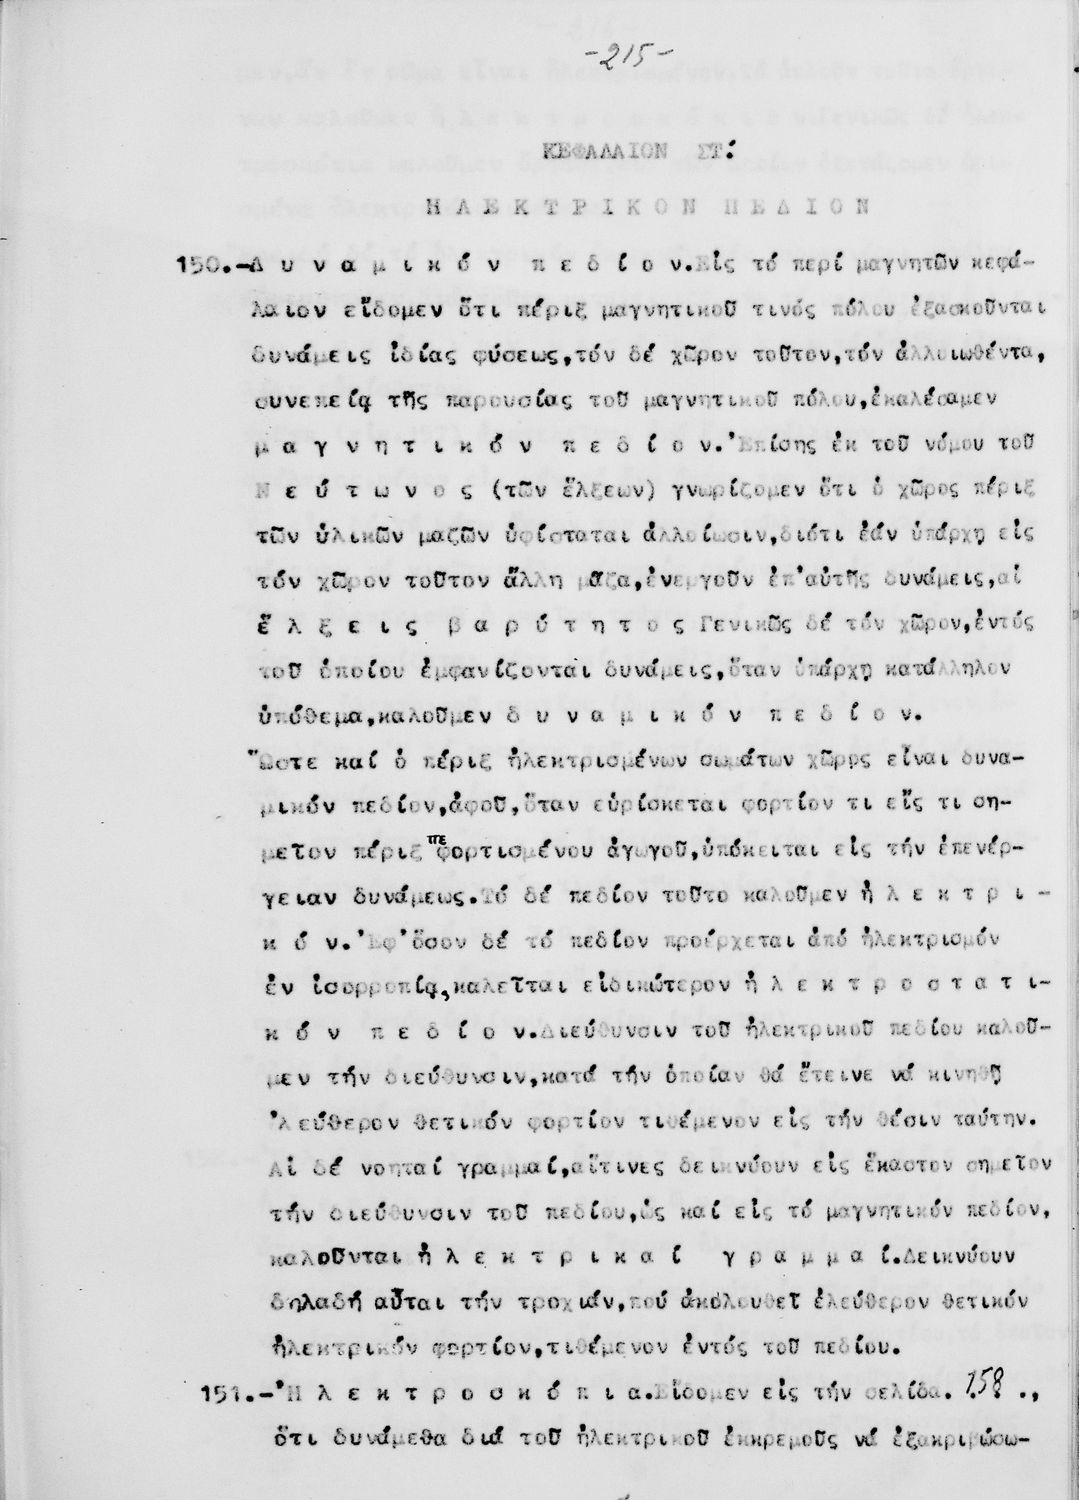 -215-
ΚΕΦΑΛΑΙΟΝ ΣΤ΄:
Η Λ Ε Κ Τ Ρ Ι Κ Ο Ν Π Ε Δ Ι Ο Ν
150.-Δ υ ν α μ ι κ ό ν π ε δ ί ο ν.Εἰς τό περί μαγνητῶν κεφά-
λαιον εἴδομεν ὅτι πέριξ μαγνητικοῦ τινός πόλου ἐξασκοῦνται
δυνάμεις ἰδίας φύσεως,τόν δέ χῶρον τοῦτον,τόν ἀλλοιωθέντα,
συνεπείᾳ τῆς παρουσίας τοῦ μαγνητικοῦ πόλου,ἐκαλέσαμεν
μ α γ ν η τ ι κ ό ν π ε δ ί ο ν.Ἐπίσης ἐκ τοῦ νόμου τοῦ
Ν ε ύ τ ω ν ο ς (τῶν ἕλξεων) γνωρίζομεν ὅτι ὁ χῶρος πέριξ
τῶν ὑλικῶν μαζῶν ὑφίσταται ἀλλοίωσιν,διότι ἐάν ὑπάρχῃ εἰς
τόν χῶρον τοῦτον ἄλλη μᾶζα,ἐνεργοῦν ἐπ'αὐτῆς δυνάμεις,αἱ
ἕ λ ξ ε ι ς β α ρ ύ τ η τ ο ς Γενικῶς δέ τόν χῶρον,ἐντός
τοῦ ὁποίου ἐμφανίζονται δυνάμεις,ὅταν ὑπάρχῃ κατάλληλον
ὑπόθεμα,καλοῦμεν δ υ ν α μ ι κ ό ν π ε δ ί ο ν.
Ὥστε καί ὁ πέριξ ἠλεκτρισμένων σωμάτων χῶρος εἶναι δυνα-
μικόν πεδίον,ἀφοῦ,ὅταν εὑρίσκεται φορτίον τι εἴς τι ση-
μεῖον πέριξ πεφορτισμένου ἀγωγοῦ,ὑπόκειται εἰς τήν ἐπενέρ-
γειαν δυνάμεως.Τό δέ πεδίον τοῦτο καλοῦμεν ἠ λ ε κ τ ρ ι -
κ ό ν.Ἐφ'ὅσον δέ τό πεδίον προέρχεται ἀπό ἠλεκτρισμόν
ἐν ἰσορροπίᾳ,καλεῖται εἰδικώτερον ἠ λ ε κ τ ρ ο σ τ α τ ι-
κ ό ν π ε δ ί ο ν.Διεύθυνσιν τοῦ ἠλεκτρικοῦ πεδίου καλοῦ-
μεν τήν διεύθυνσιν,κατά τήν ὁποίαν θά ἔτεινε νά κινηθῇ
'λεύθερον θετικόν φορτίον τιθέμενον εἰς τήν θέσιν ταύτην.
Αἱ δέ νοηταί γραμμαί,αἵτινες δεικνύουν εἰς ἕκαστον σημεῖον
τήν διεύθυνσιν τοῦ πεδίου,ὡς καί εἰς τό μαγνητικόν πεδίον,
καλοῦνται ἠ λ ε κ τ ρ ι κ α ί γ ρ α μ μ α ί.Δεικνύουν
δηλαδή αὗται τήν τροχιάν,πού ἀκόλουθεῖ ἐλεύθερον θετικόν
ἠλεκτρικόν φορτίον,τιθέμενον ἐντός τοῦ πεδίου.
151.-Ἠ λ ε κ τ ρ ο σ κ ό π ι α.Εἴδομεν εἰς τήν σελίδα. 158 .,
ὅτι δυνάμεθα διά τοῦ ἠλεκτρικοῦ ἐκκρεμοῦς νά ἐξακριβώσω-